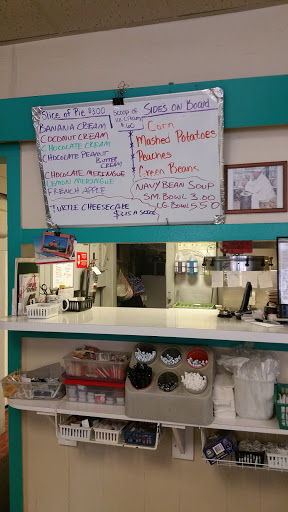 Slice of Pie $3.00
Banana Cream
Coconut Cream
Chocolate Cream
Chocolate Peanut
Butter
Cream
Chocolate Meringue
Lemon Meringue
French Apple
Turtle Cheesecake
Scoop of
Ice Cream
Sides on Board
Corn
Mashed Potatoes
Peaches
Green Beans
Navy Bean Soup
Sm. Bowl 3.00
Lg. Bowl 5.50